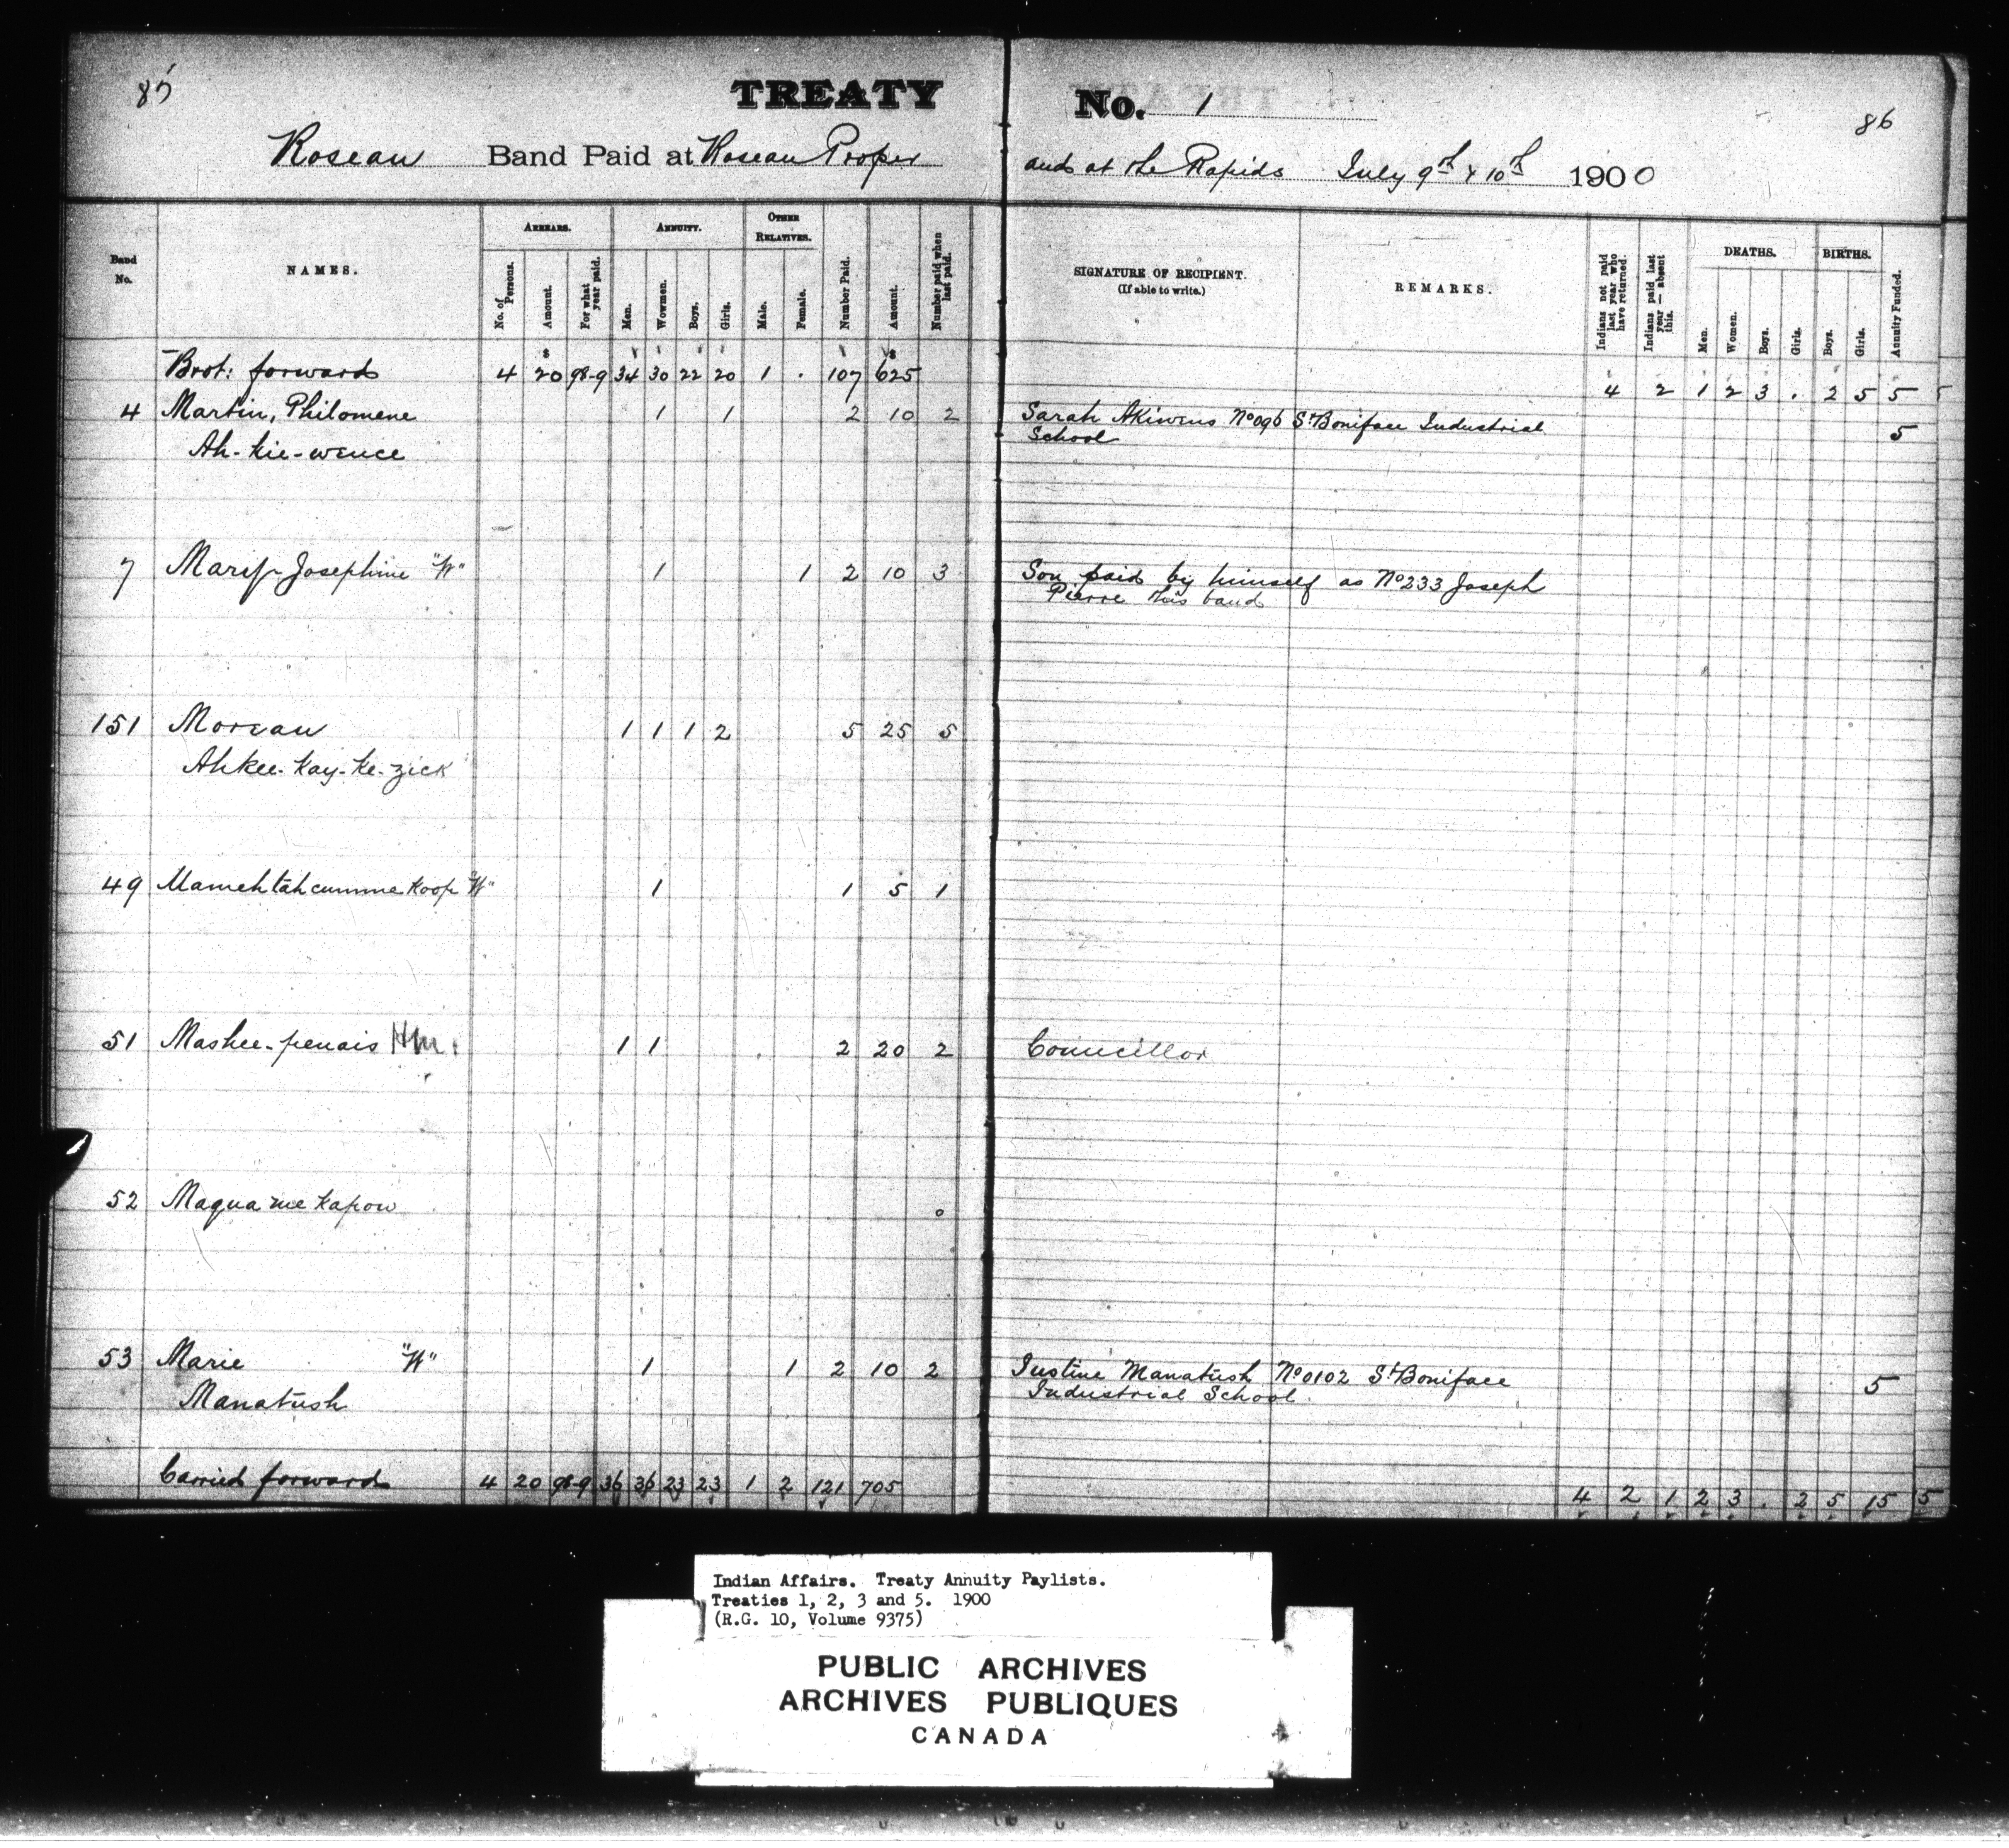 85
TREATY No. 1
86
Roseau Band Paid at Roseau Proper and at the Rapids July 9th & 10th 1900
Band No.
NAMES.
ARREARS.
No. of Persons.
Amount.
For what year paid.
ANNUITY.
Men.
Wowmen.
Boys.
Girls.
OTHER RELATIVES.
Male.
Female.
Number Paid.
Amount.
Number paid when last paid.
SIGNATURE OF RECIPIENT.
(If able to write.)
REMARKS.
Indians not paid last year who have returned.
Indians paid last year — absent this.
DEATHS.
Men.
Women.
Boys.
Girls.
BIRTHS.
Boys.
Girls.
Annuity Funded.
Brot: forward 4 20 98-9 34 30 22 20 1 . 107 625 4 2 1 2 3 . 2 5 5 5
4 Martin, Philomene 1 1 2 10 2 Sarah Akiwens No 096 St Boniface Industrial
Ah-kie-wence School 5
7 Josephine "W" 1 1 2 10 3 Son paid by himself as No 233 Joseph
Pierre this band
151 Moreau 1 1 1 2 5 25 5
Ahkee-Kay-Ke-zick
49 Mamehtahcumme Koop "W" 1 1 5 1
51 Mashee-penais 1 1 2 20 2 Councillor
52 Maqua me Kapow 0
53 Marie "W" 1 1 2 10 2 Justine Manatush No 0102 St Boniface
Manatush Industrial School 5
Carried forward 4 20 98-9 36 36 23 23 1 2 121 705 4 2 1 2 3 . 2 5 15 5
Indian Affairs. Treaty Annuity Paylists.
Treaties 1, 2, 3 and 5. 1900
(R.G. 10, Volume 9375)
PUBLIC ARCHIVES
ARCHIVES PUBLIQUES
CANADA